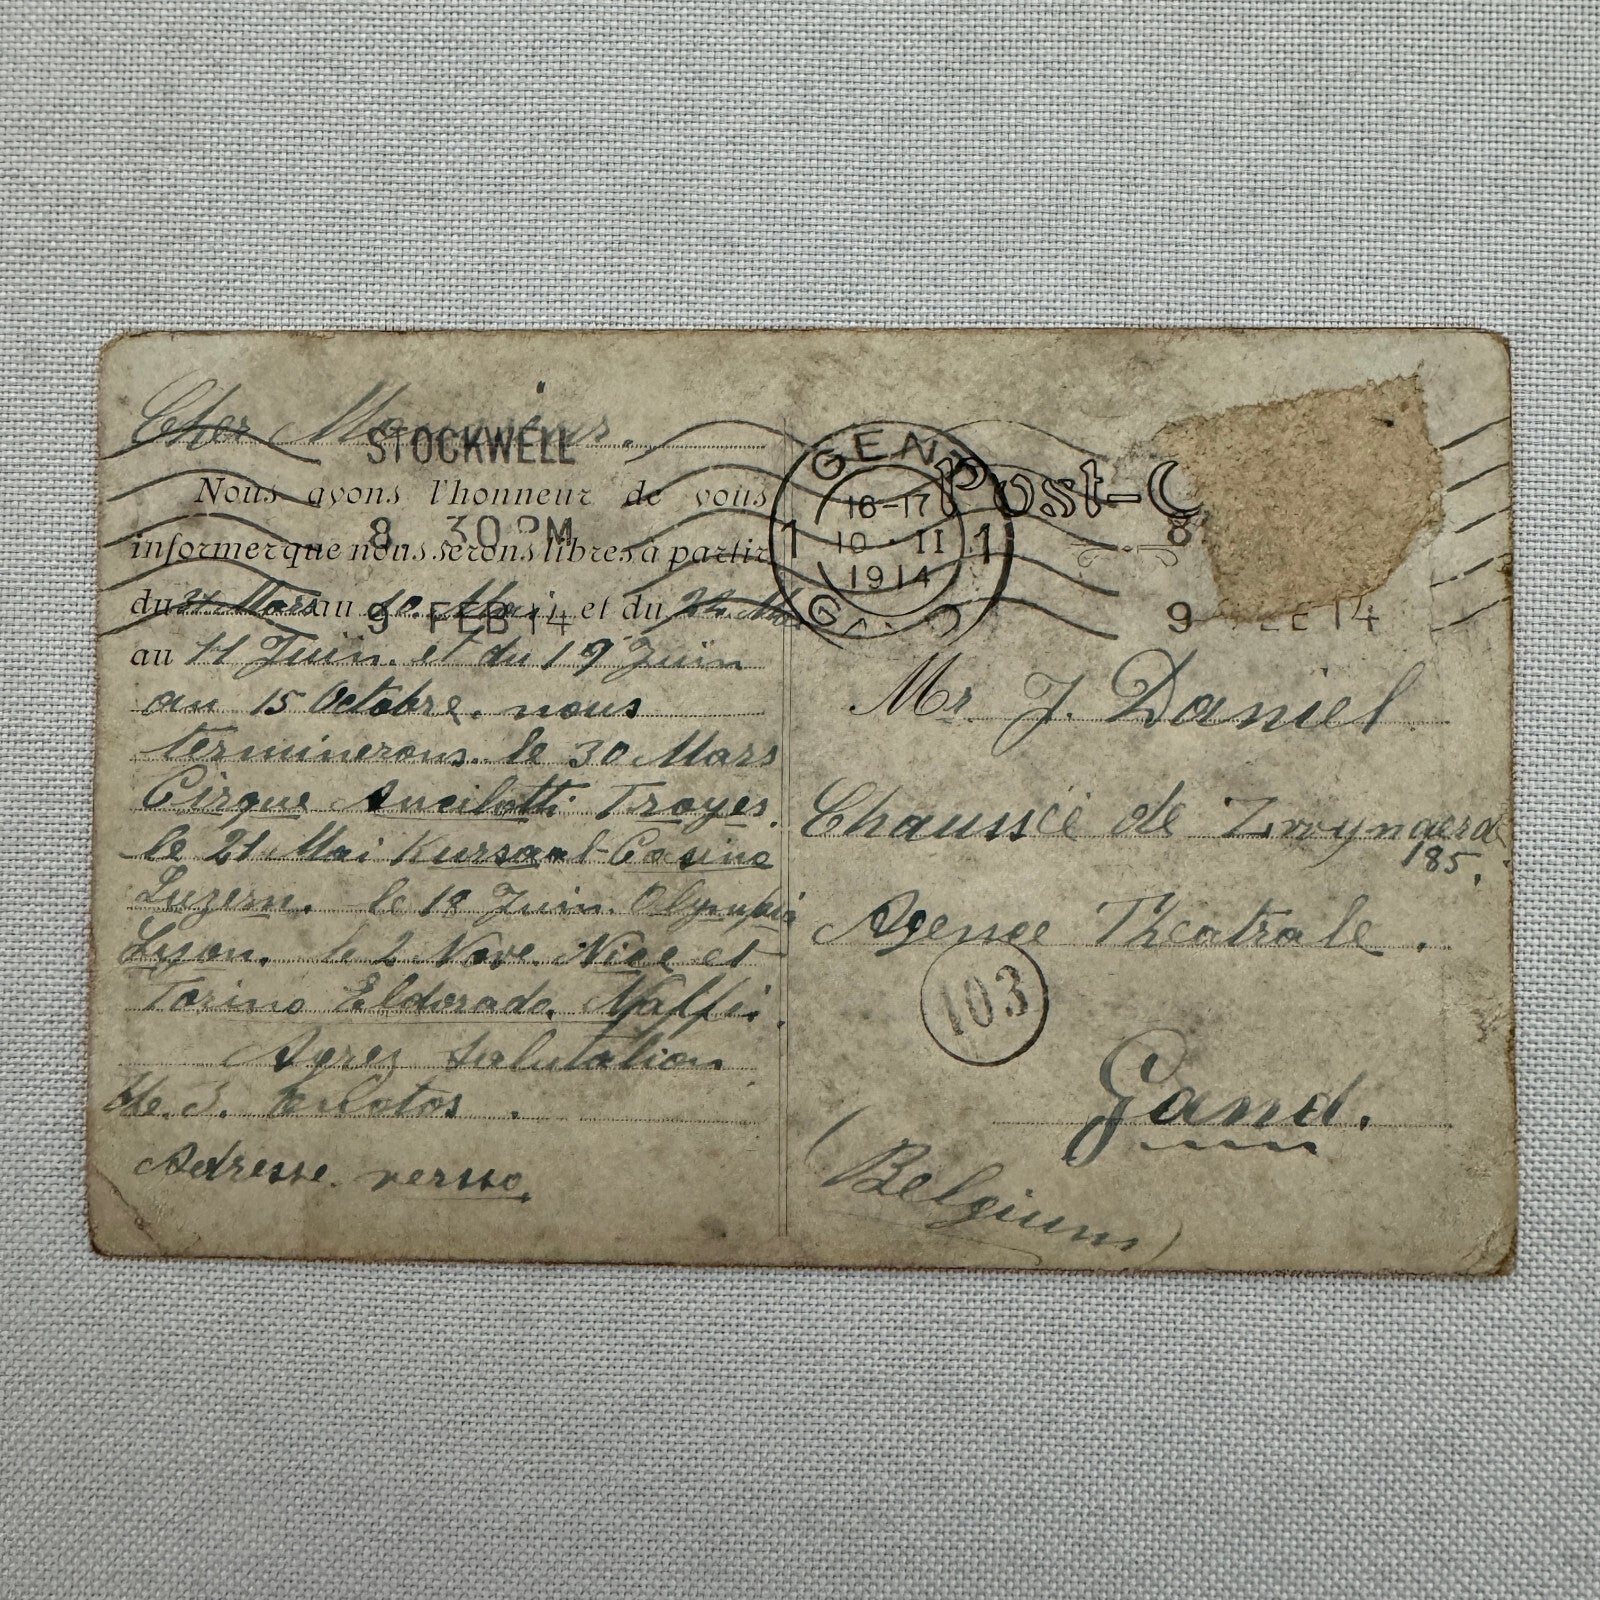 Cher Monsieur.
STOCKWELL
Nous avons l'honneur de vous
8 30 PM
informer que nous serons libres à partir
du 31 Mars au 10 Mai et du
9 FEB 14
au 11 Juin. et du 19 Juin
au 15 Octobre. nous
terminerons. le 30 Mars
Cirque Ancilotti Troyes.
le 21 Mai Kursaal-Casino
Luzern. le 18 Juin. Olympia
Lyon. le 2 Nove. Nice et
Torino Eldorado.
salutation
Adresse versso.
GENT
16-17
1 10 · II 1
1914
G
Post-C
8
9 14
Mr J. Daniel
Chaussée de Zwynaerde
185.
Agence Theatrale.
103
Gand.
(Belgium)